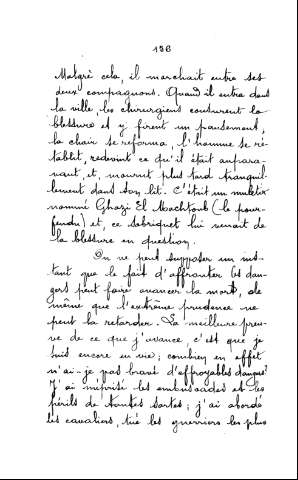 138
Malgré cela, il marchait entre ses
deux compagnons. Quand il entra dans
la ville, les chirurgiens cousurent la
blessure et y firent un pansement,
la chair se reforma, l'homme se ré-
tablit, redevint ce qu'il était aupara-
vant, et, mourut plus tard tranquil-
lement dans son lit. C'était un muletier
nommé Ghazi El Machtoub (le pour-
fendu) et, ce sobriquet lui venait de
la blessure en question.
On ne peut supposer un ins-
tant que le fait d'affronter les dan-
gers peut faire avancer la mort, ou
même que l'extrême prudence ne
peut la retarder. La meilleure preu-
ve de ce que j'avance, c'est que je
suis encore en vie; combien en effet
n'ai-je pas bravé d'effroyables dangers?
J'ai méprisé les embuscades et les
périls de toutes sortes; j'ai abordé
les cavaliers, tué les guerriers les plus